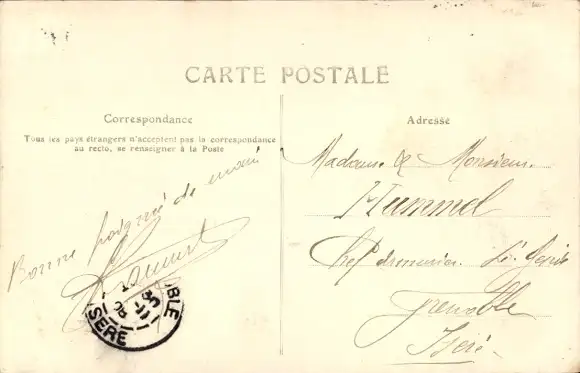 CARTE POSTALE
Correspondance
Tous les pays étrangers n'acceptent pas la correspondance
au recto, se renseigner à la Poste
Bonne poignée de main
Adresse
Madame & Monsieur
Hummel
Chef d'armurier
Grenoble
Isère
BLE
ISÈRE